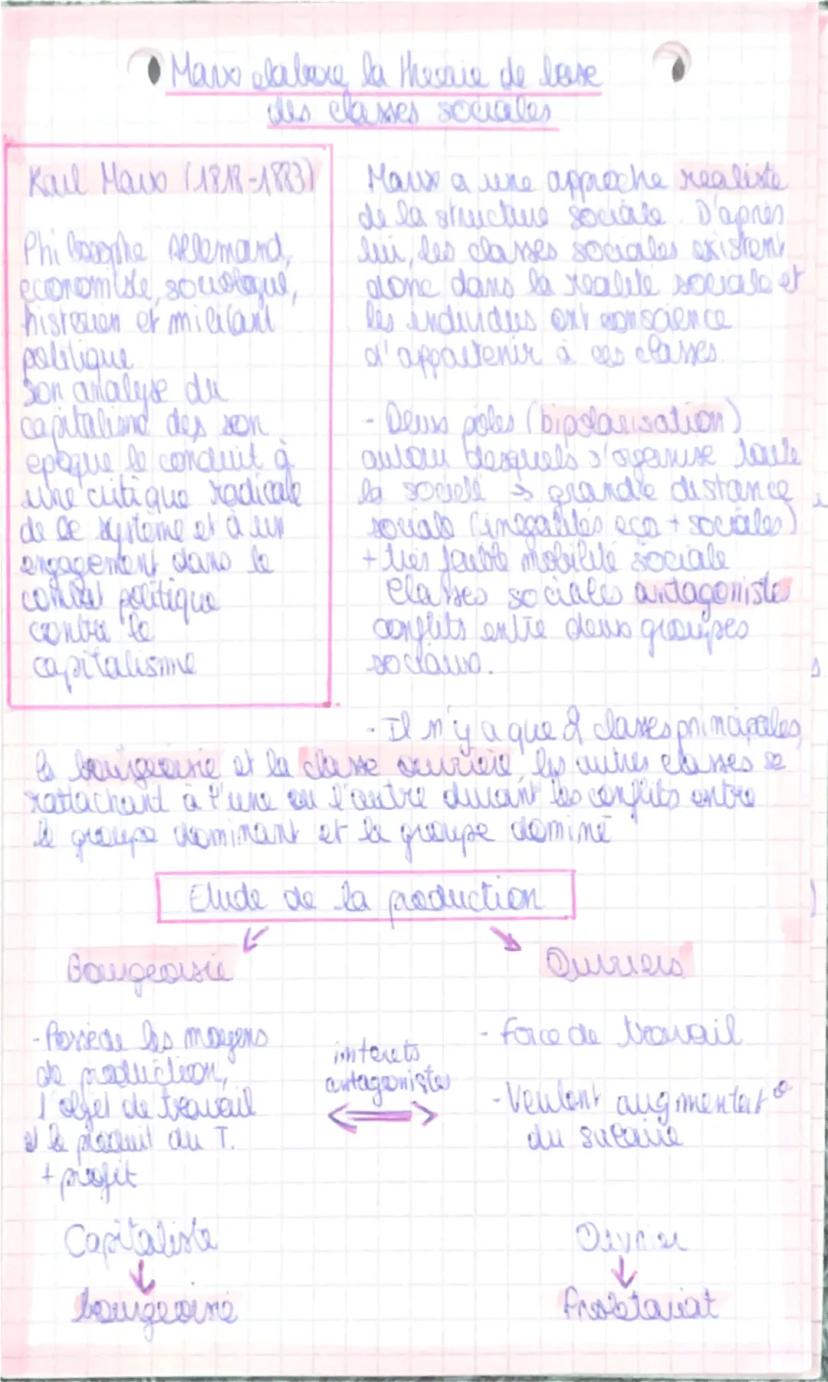 Marx elabore la théorie de base
des classes sociales
Karl Marx (1818-1883)
Philosophe Allemand,
economiste, sociologue,
historien et militant
politique
Son analyse du
capitalisme des son
epoque le conduit à
une critique radicale
de ce système et à un
engagement dans le
combat politique
contre le
capitalisme
Marx a une approche realiste
de la structure sociale. D'après
lui, les classes sociales existent
donc dans la realité sociale et
les individus ont conscience
d'appartenir à ces classes.
- Deux pôles (bipolarisation)
autour desquels s'organise toute
la société → grande distance
sociale (inégalités eco + sociales)
+ très faible mobilité sociale
Classes sociales antagoniste
conflits entre deux groupes
sociaux.
- Il n'y a que 2 classes principales,
la bourgeoisie et la classe ouvrière, les autres classes se
rattachant à l'une ou l'autre durant les conflits entre
le groupe dominant et le groupe dominé
Etude de la production
Bourgeoisie
Ouvriers
- Possède les moyens
de production,
l'objet de travail
et le produit du T.
+ profit
interets
antagonistes
- Force de travail
- Veulent augmentat°
du salaire
Capitaliste
bourgeoisie
Ouvrier
Proletariat